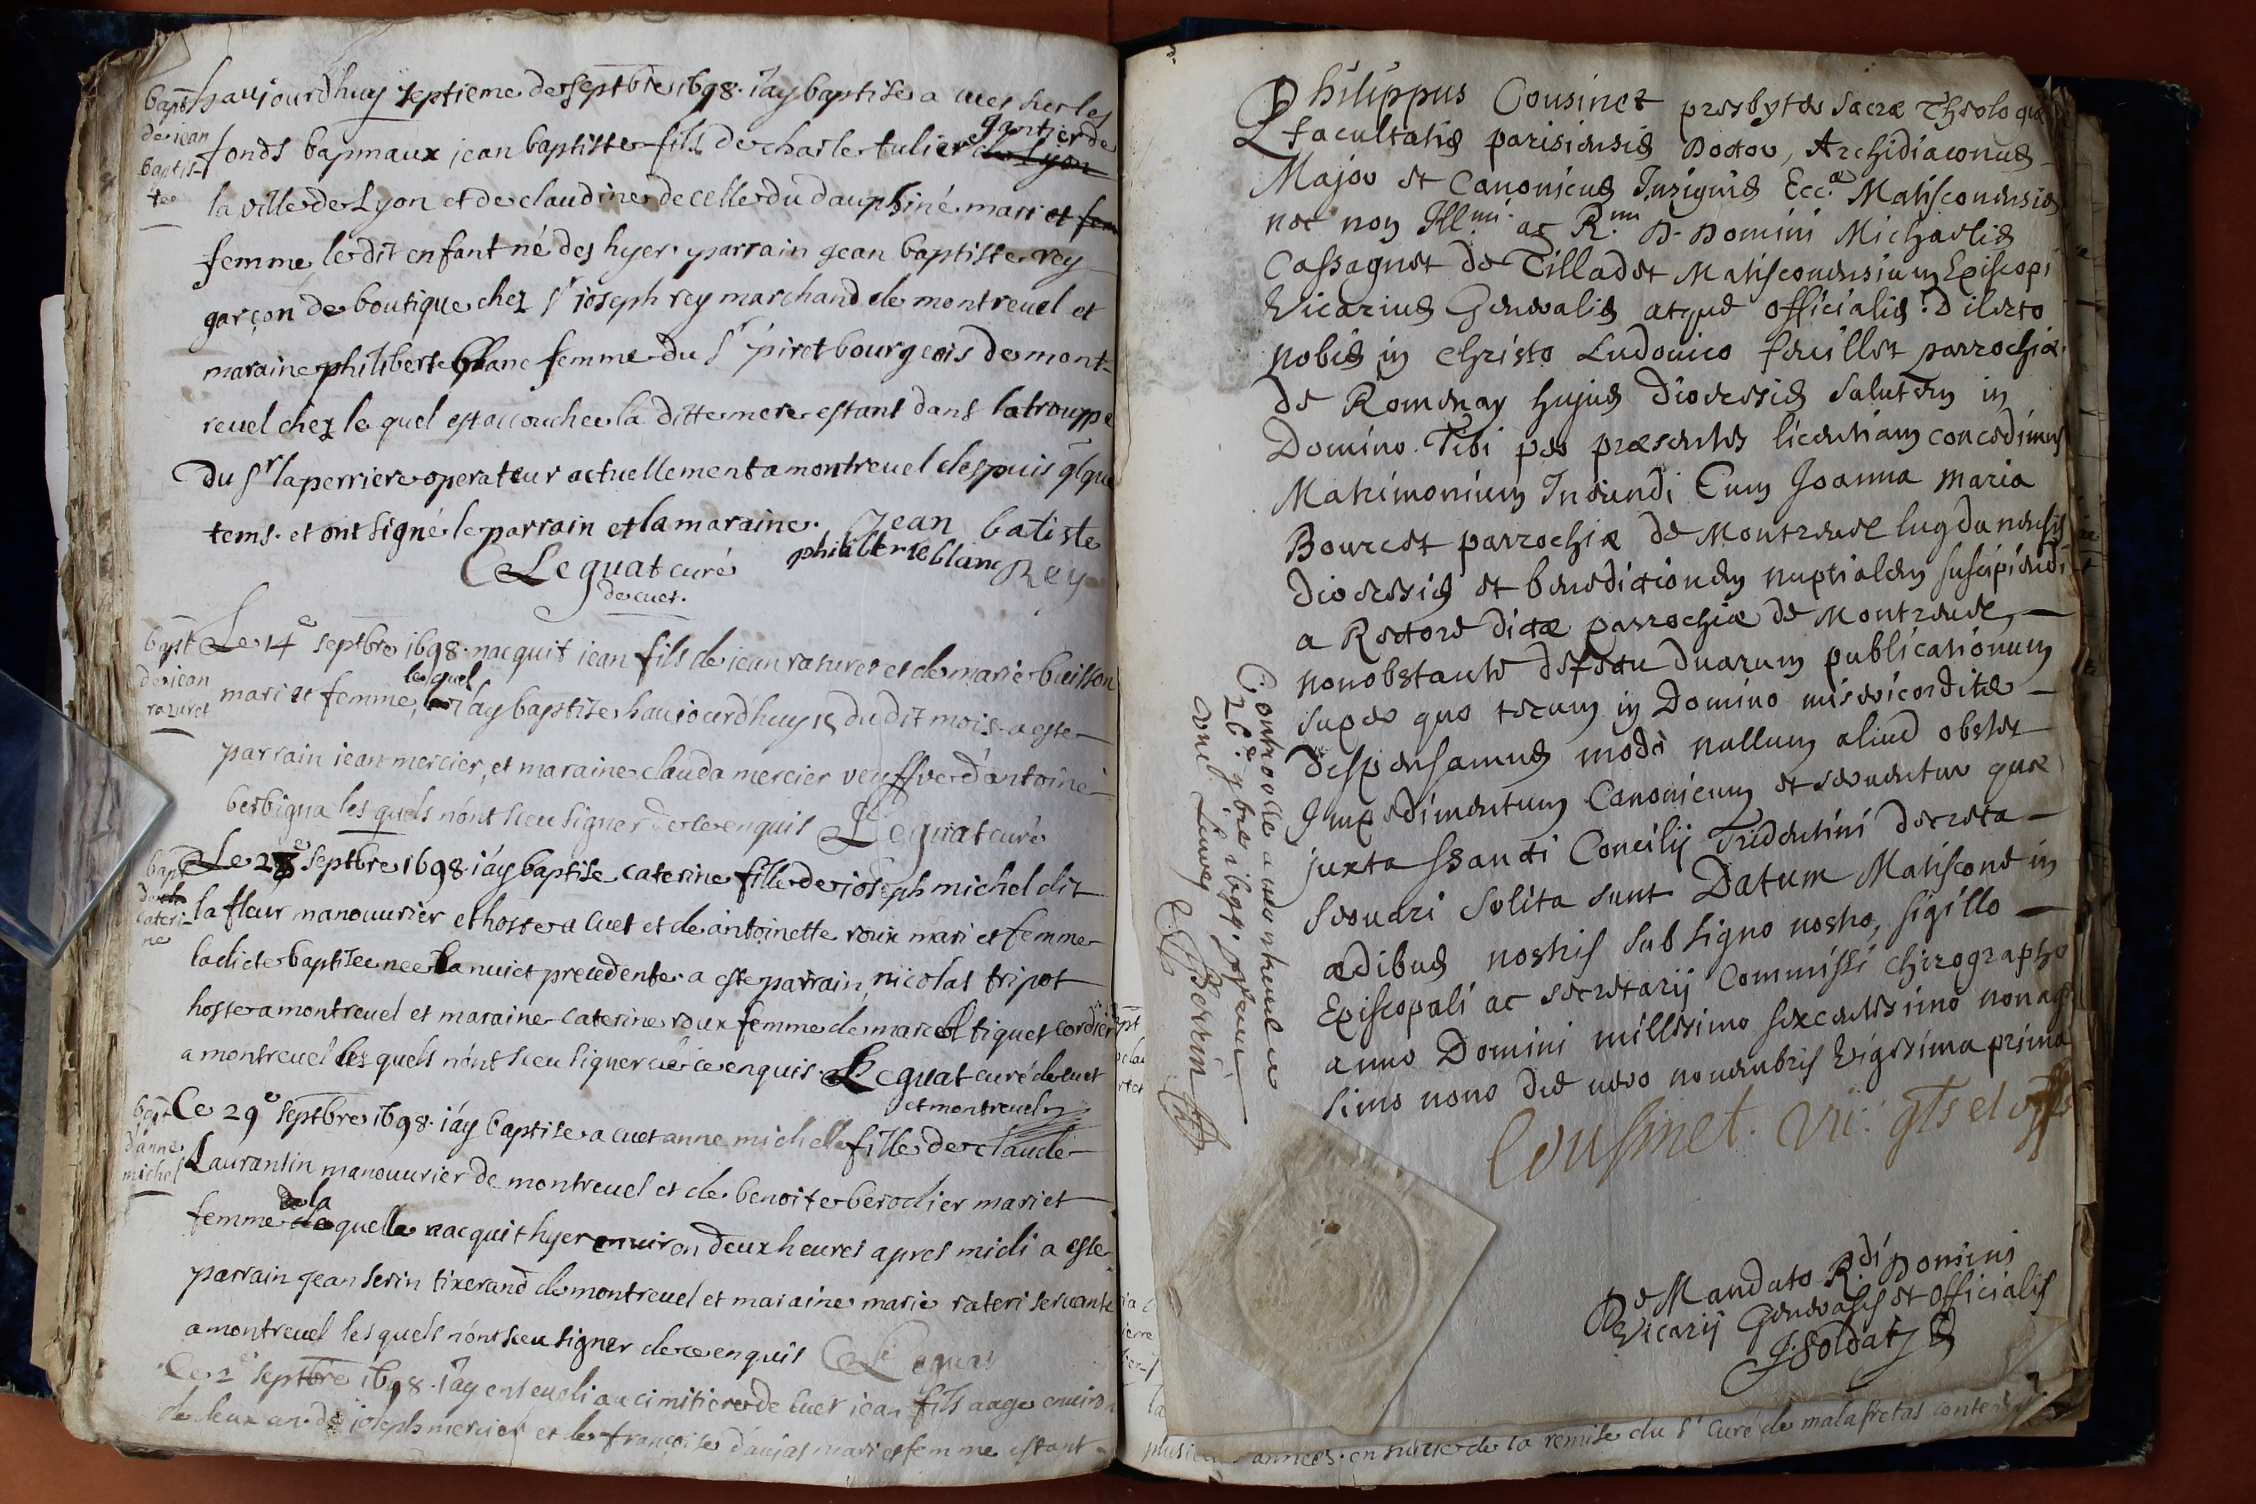 bapt
de iean
baptis-
te
haujourdhuy septieme de septbre 1698. i'ay baptise a cuet sur les
fonds bapmaux jean baptiste fils de charle tulier de Lyon gantier de
la ville de Lyon et de claudine de celle du dauphiné mari et fem
femme, le dit enfant né des hyer. parrain jean baptiste rey
garçon de boutique chez sr joseph rey marchand de montrevel et
maraine philiberte blanc femme du sr piret bourgeois de mont-
revel chez lequel est accouchee la ditte mere estant dans la trouppe
du sr laperriere operateur actuellement a montrevel despuis qlque
tems. et ont signé le parrain et la maraine. Jean batiste
Rey
philiberte blanc
Leguat curé
de cuet.
bapt
de iean
razuret
Le 14e septbre 1698. nacquit iean fils de iean rasuret et de marie buisson
mari et femme, lequel i'ay baptise haujourdhuy 15 du dit mois. a este
parrain iean mercier, et maraine clauda mercier veuffve d'antoine
berbigna les quels n'ont sceu signer de ce enquis Leguat curé
bapt
de
cateri-
ne
Le 28e septbre 1698. i'ay baptise caterine fille de joseph michel dit
la fleur manouurier et hoste a cuet et de antoinette roux mari et femme
ladicte baptisee nee la nuict precedente. a este parrain nicolas tripot
hoste a montrevel et maraine caterine roux femme de marc tiquet cordier
a montrevel les quels n'ont sceu signer de ce enquis. Leguat curé de cuet
et montrevel
bapt
d'anne
michel
Ce 29e septbre 1698. i'ay baptise a cuet anne michelle fille de claude
Laurantin manouurier de montrevel et de benoite berodier mari et
femme de la quelle nacquit hyer environ deux heures apres midi a este
parrain jean serin tixerand de montrevel et maraine marie rateri servante
a montrevel les quels n'ont sceu signer de ce enquis Leguat
Ce 2e septbre 1698. i'ay enseveli au cimitiere de cuet iean fils aage environ
de deux an. de joseph mercier et de françoise d'aujas mari et femme estant
Philippus Cousinet presbyter sacræ Theologiæ
facultatis parisiensis Doctor, Archidiaconus
Major et Canonicus Insignis Ecc.æ Matisconensis
nec non Ill.mi ac R.mi D. Domini Michaelis
Cassagnet de Tilladet Matisconensium Episcopi
Vicarius Generalis atque officialis. Dilecto
nobis in christo Ludovico feuillet parrochiæ
de Romenay hujus Diocessis salutem in
Domino. Tibi per præsentes licentiam concedimus
Matrimonium Ineundi Cum Joanna Maria
Bourcet parrochiæ de Montrevel lugdunensis
Diocessis et benedictionem nuptialem suscipiendi
a Rectore dictæ parrochiæ de Montrevel,
nonobstante defectu duarum publicationum
super quo tecum in Domino misericorditer
dispensamus modo nullum aliud obstet
Impedimentum Canonicum et serventur quæ
juxta ssancti Concilij Tridentini decreta
servari solita sunt Datum Matiscone in
ædibus nostris sub signo nostro, sigillo
Episcopali ac secretarij Commissi chirographo
anno Domini millesimo sexcentesimo nonage
simo nono die vero novembris vigesima prima
Cousinet. vic: gls et offlis
De Mandato R.di Domini
Vicarij Generalis et Officialis
J. Soldat
Controolle a montrevel ce
26e 9bre 1699.
plusieurs années. en suitte de la remise du sr curé de malafretas